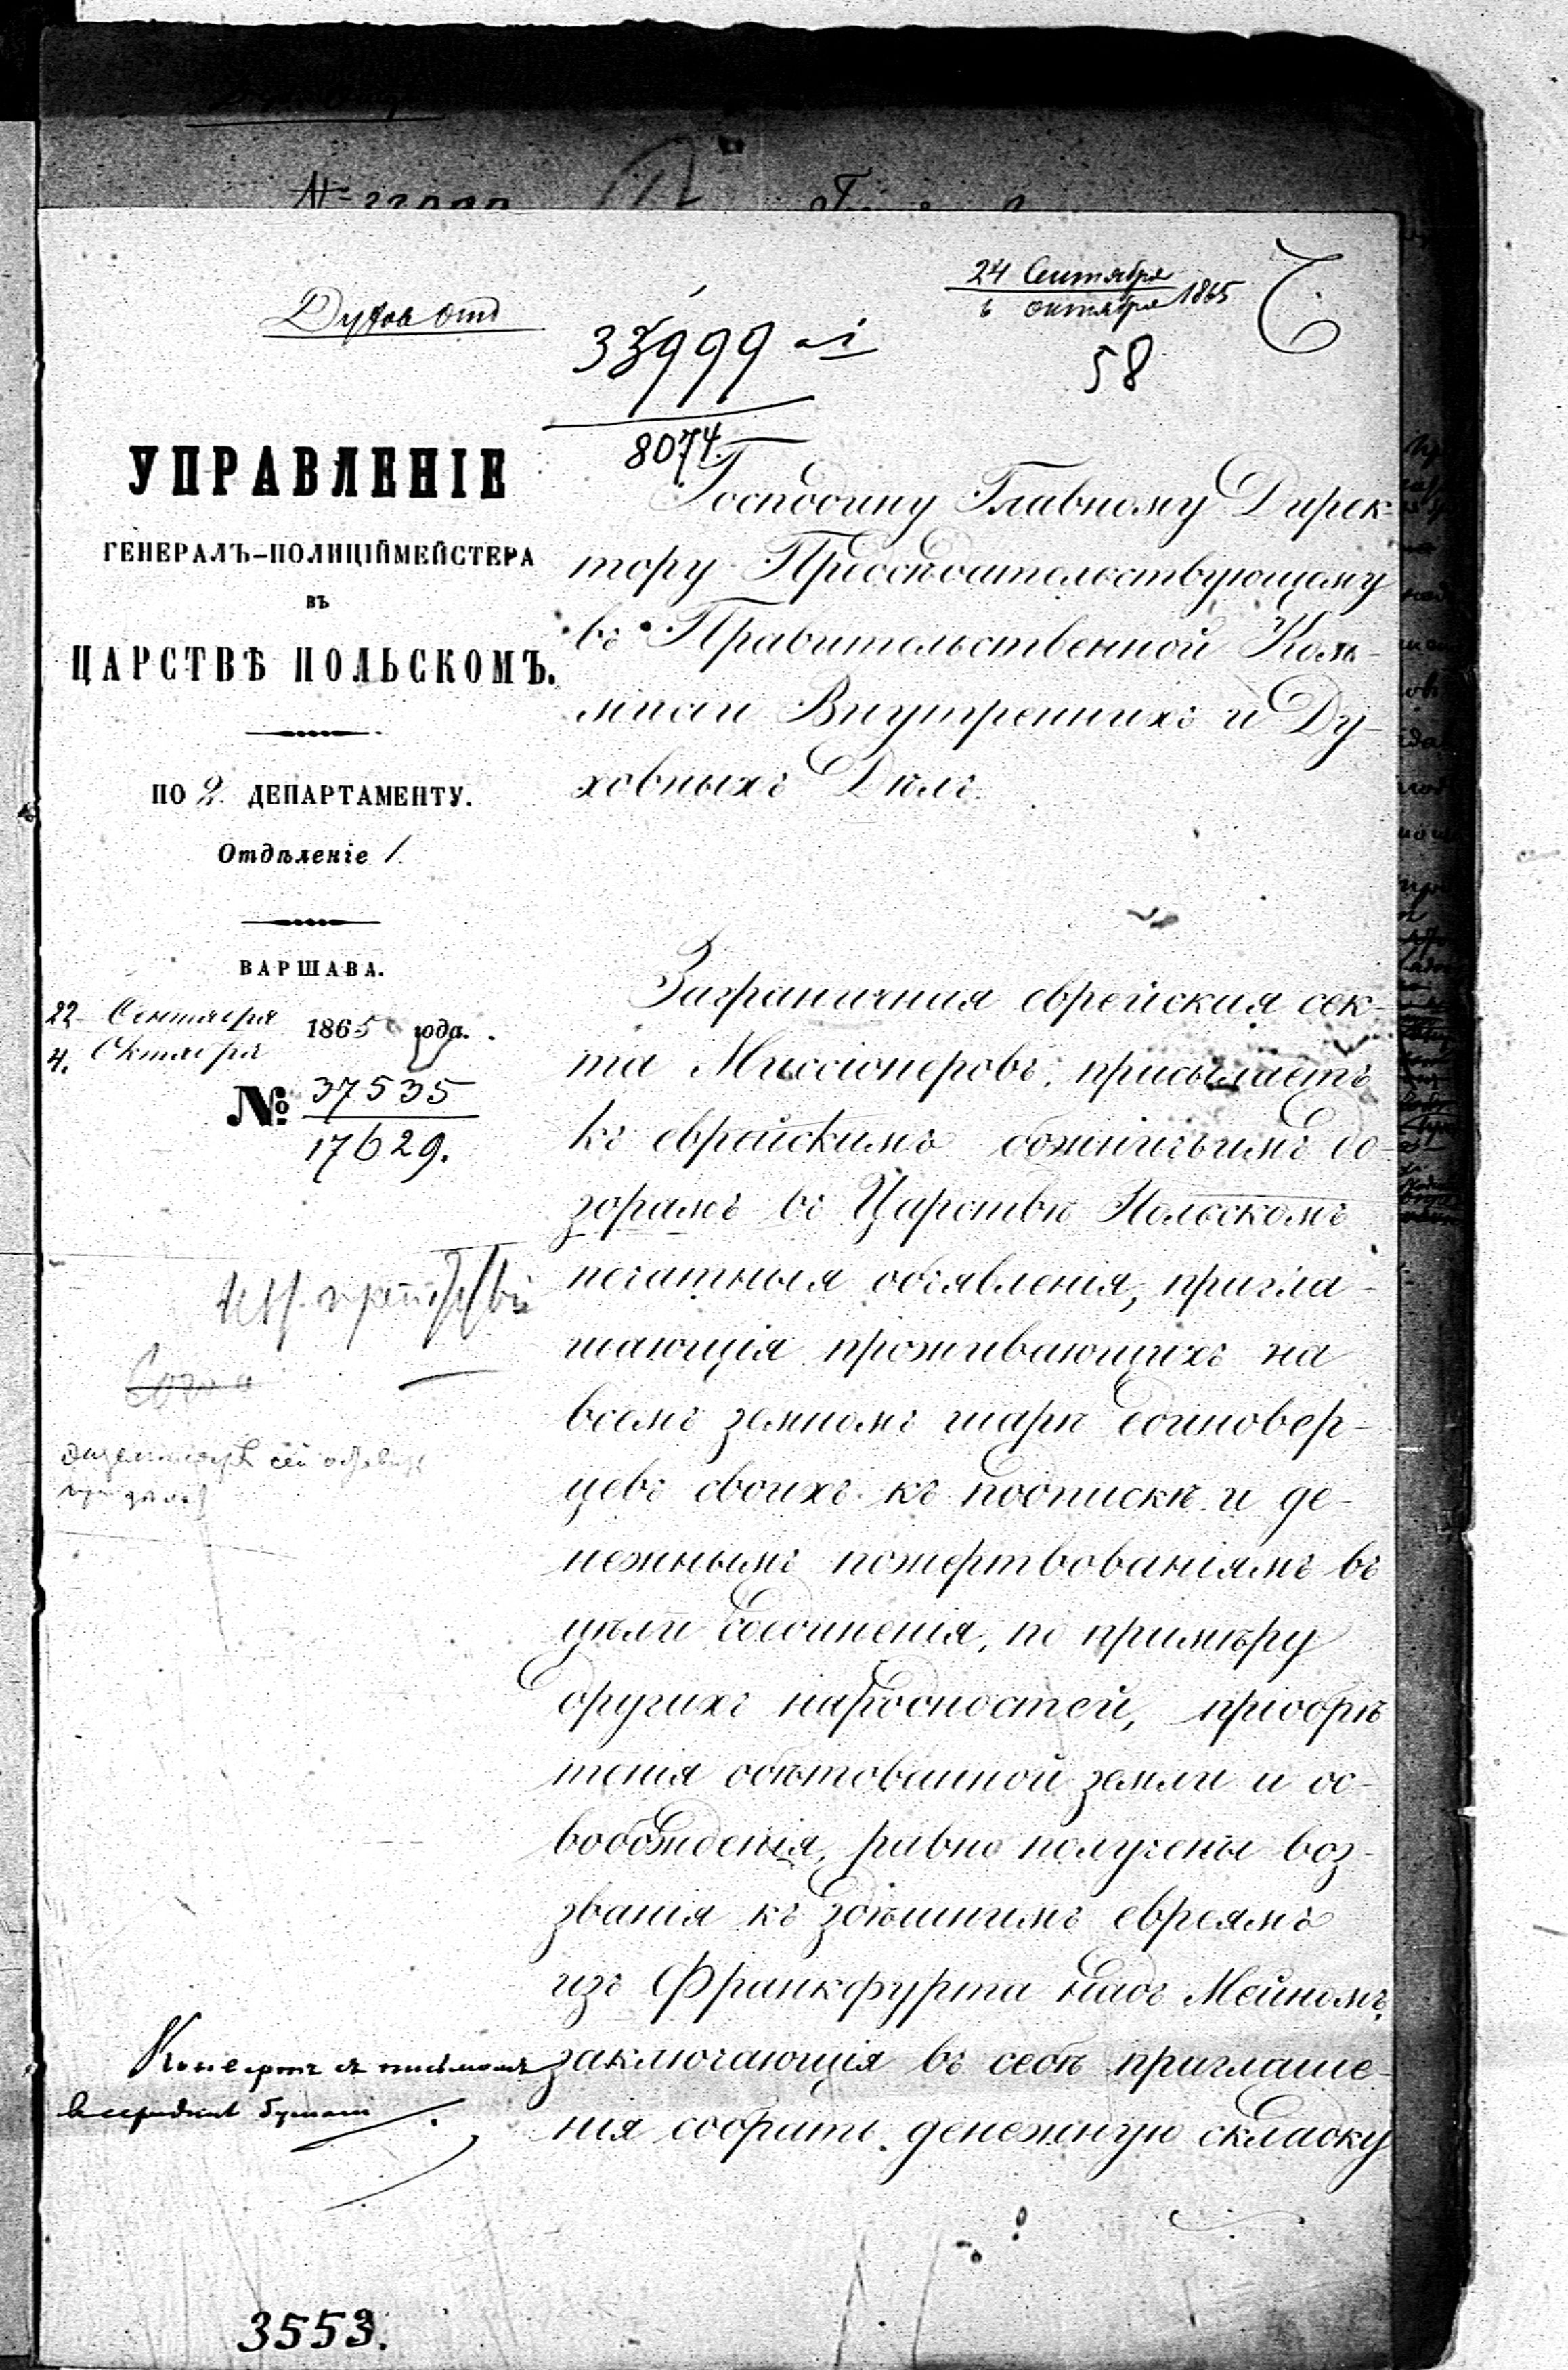 24 Сентября
6 октября 1865
Духов отд
33999
58
8074.
УПРАВЛЕНІЕ
ГЕНЕРАЛЪ-ПОЛИЦІЙМЕЙСТЕРА
ВЪ
ЦАРСТВѢ ПОЛЬСКОМЪ.
ПО 2 ДЕПАРТАМЕНТУ.
Отдѣленіе 1.
ВАРШАВА.
22 Сентября
4. Октября 1865 года.
№ 37535
17629.
Господину Главному Дирек-
тору Предсѣдательствующему
въ Правительственной Ком-
мисіи Внутреннихъ и Ду-
ховныхъ Дѣлъ.
Заграничная еврейская сек-
та Миссіонеровъ, присылаетъ
къ еврейскимъ божничьимъ до-
зорамъ въ Царствѣ Польскомъ
печатныя объявленія, пригла-
шающія проживающихъ на
всемъ земномъ шарѣ единовер-
цевъ своихъ къ подпискѣ и де-
нежнымъ пожертвованіямъ въ
цѣли соединенія, по примѣру
другихъ народностей, пріобрѣ
тенія обѣтованной земли и ос-
вобожденія, равно получены воз-
званія къ здѣшнимъ евреямъ
изъ Франкфурта надъ Мейномъ,
заключающія въ себѣ приглаше-
нія собрать денежную складку
Конвертъ съ письмомъ
въ срединѣ бумаги
3553.